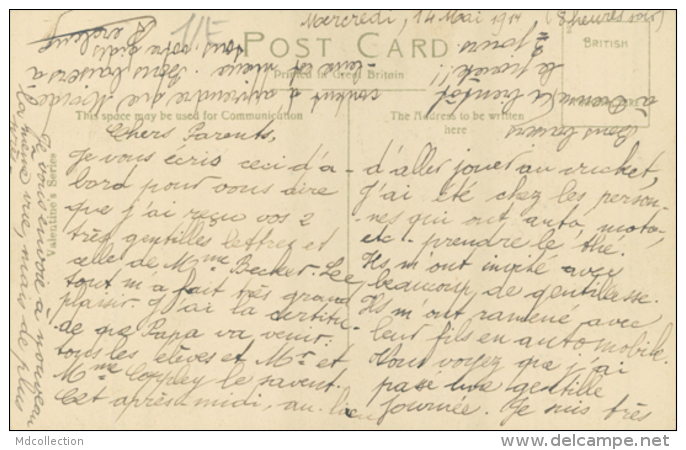 Mercredi, 14 Mai 19 (8 heures soir)
POST CARD
BRITISH
Printed in Great Britain
This space may be used for Communication
The Address to be written
here
Valentine's Series
Chers Parents,
Je vous écris ceci d'a-
bord pour vous dire
que j'ai reçu vos 2
très gentilles lettres et
celle de Mme Becker. Le
tout m'a fait très grand
plaisir. J'ai la certitu-
de que Papa va venir.
tous les élèves et Mr et
Mme Coppley le savent.
Cet après-midi, au lieu
d'aller jouer au cricket,
j'ai été chez les person-
-nes qui ont auto, moto,
etc - prendre le thé.
Ils m'ont invité avec
beaucoup de gentillesse.
Ils m'ont ramené avec
leur fils en automobile.
Vous voyez que j'ai
passé une gentille
journée. Je suis très
content d'apprendre que
mieux. Bons baisers à
tous. Votre
Bons baisers
à
bientôt
Je vous envoie à nouveau
la même vue, mais de plus
Mdcollection
www.delcampe.net